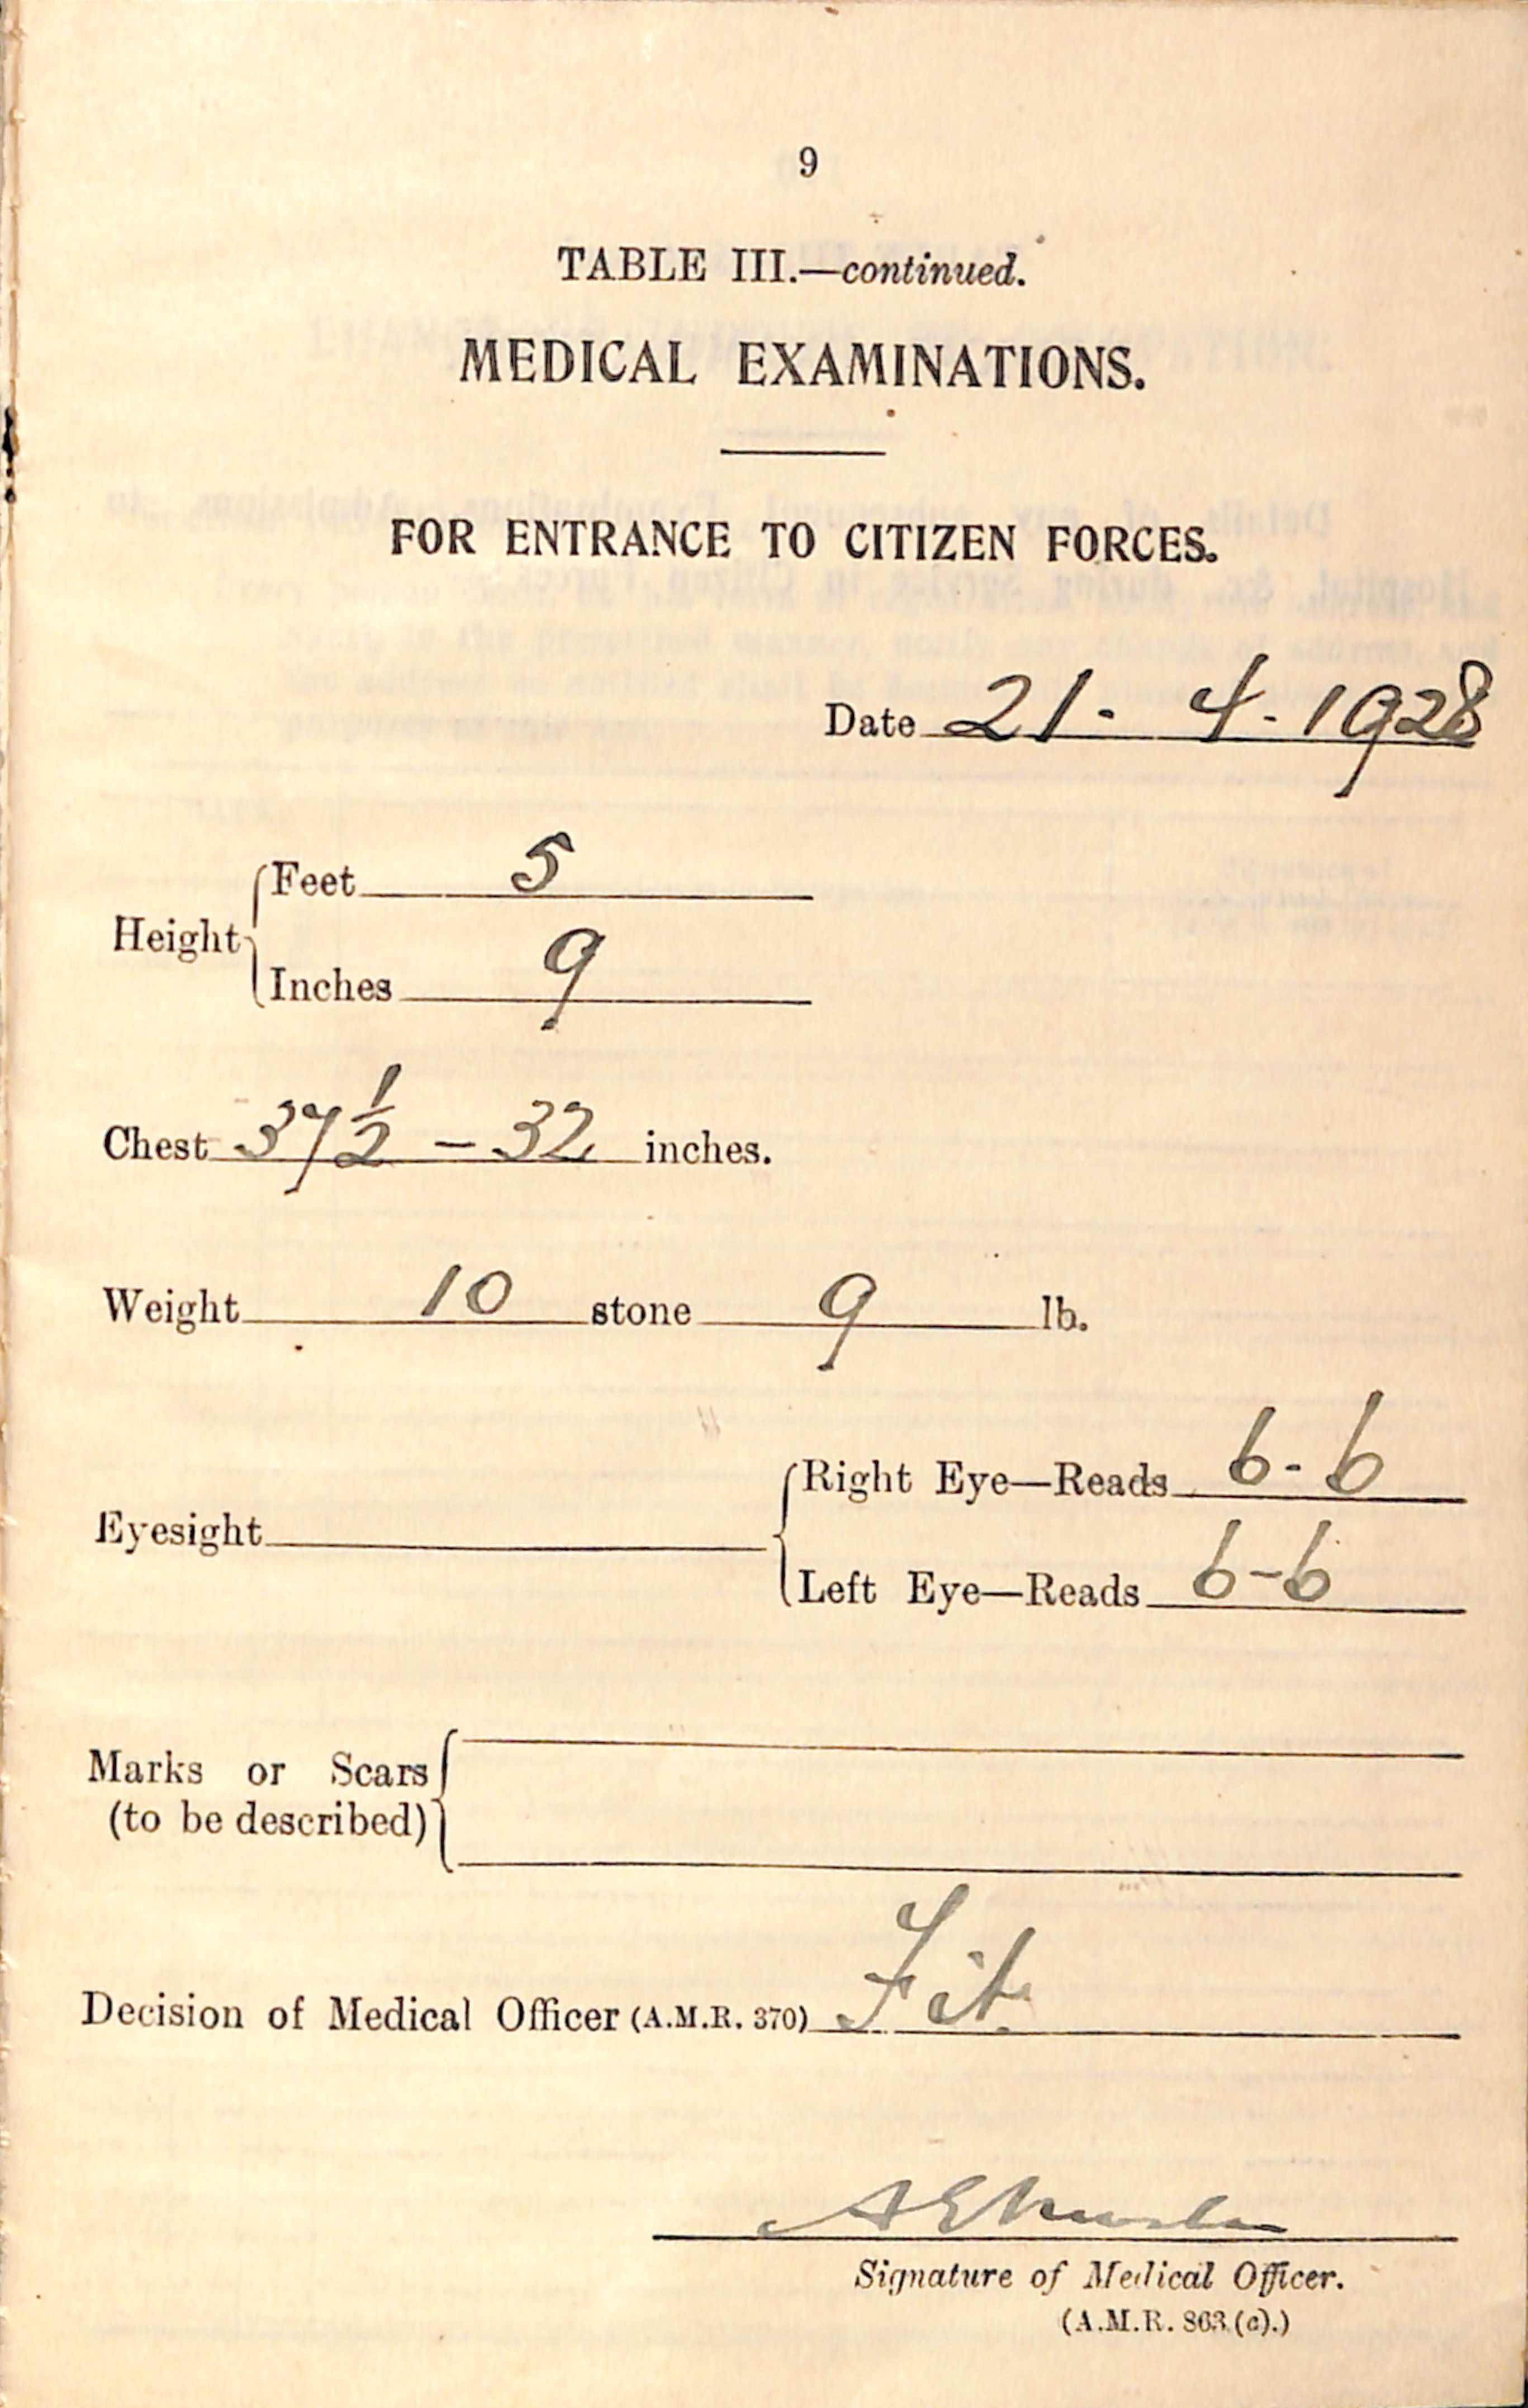 9
TABLE III.—continued.
MEDICAL EXAMINATIONS.
FOR ENTRANCE TO CITIZEN FORCES.
Date 21 - 4 - 1928
Feet 5
Height
Inches 9
Chest 37 1/2 - 32 inches.
Weight 10 stone 9 lb.
Right Eye—Reads 6-6
Eyesight
Left Eye—Reads 6-6
Marks or Scars
(to be described)
Decision of Medical Officer (A.M.R. 370) Fit
Signature of Medical Officer.
(A.M.R. 863 (c).)